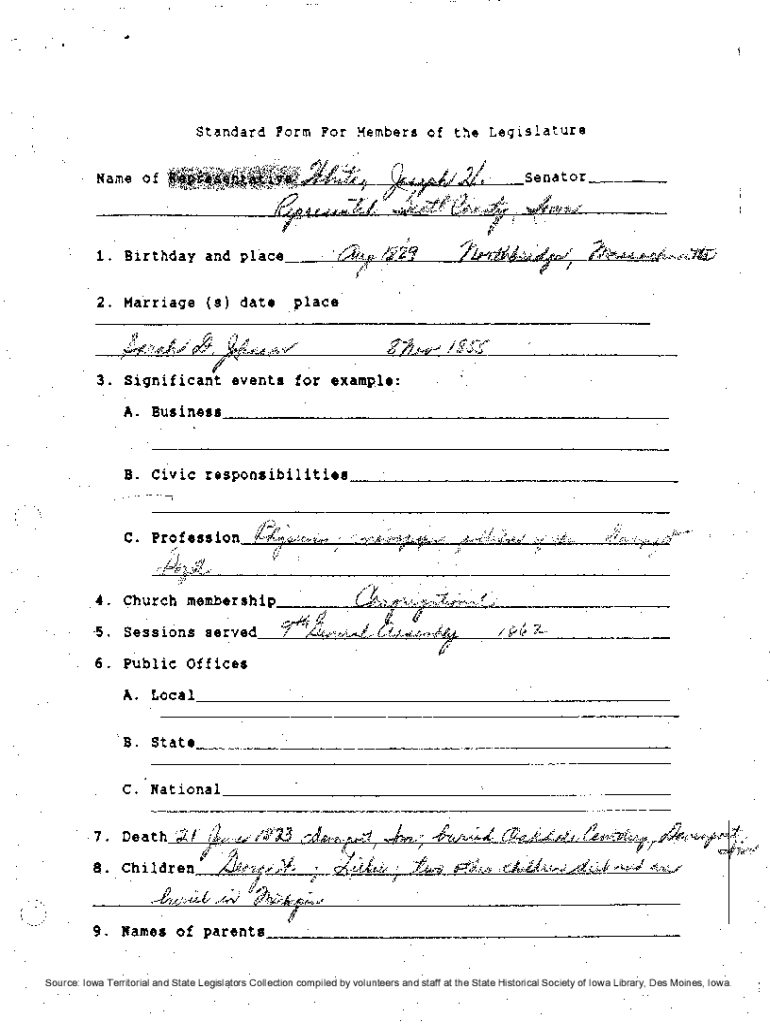 Standard Form For Members of the Legislature
Name of Representative White, Joseph H. Senator
Represented Scott County, Iowa
1. Birthday and place Aug 1829 Northbridge, Massachusetts
2. Marriage (s) date place
Sarah D. Johnson 8 Nov 1855
3. Significant events for example:
A. Business
B. Civic responsibilities
C. Profession Physician; newspaper publisher of the Davenport
4. Church membership Congregational
5. Sessions served 9th General Assembly 1862
6. Public Offices
A. Local
B. State
C. National
7. Death 21 June 1893 Davenport, Iowa; buried Oakdale Cemetery, Davenport
Iowa
8. Children George W.; Lillie; two other children died and are
buried in Michigan
9. Names of parents
Source: Iowa Territorial and State Legislators Collection compiled by volunteers and staff at the State Historical Society of Iowa Library, Des Moines, Iowa.